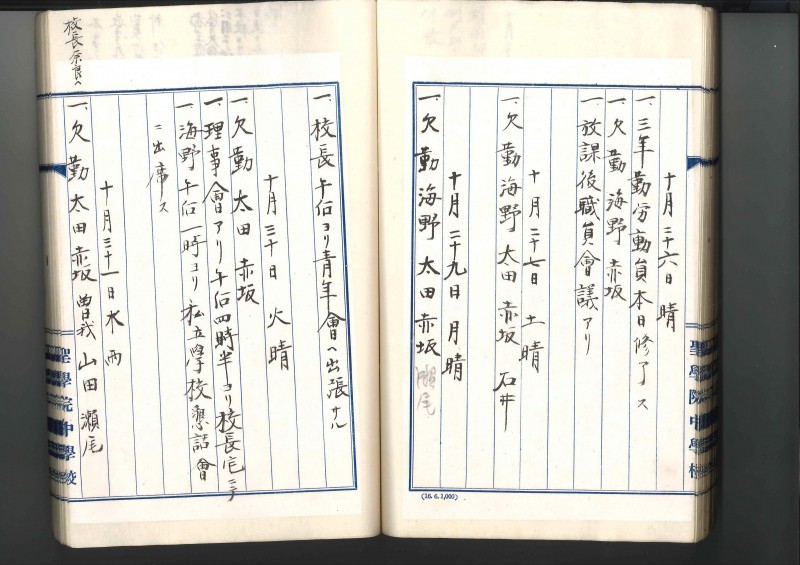 十月二十六日 晴
一、三年勤労動員本日修了ス
一、欠勤 海野 赤坂
一、放課後職員會議アリ
十月二十七日 土 晴
一、欠勤 海野 太田 赤坂 石井
十月二十九日 月 晴
一、欠勤 海野 太田 赤坂 瀬尾
(16.6.2,000)
聖學院中學校
一、校長午后ヨリ青年會ヘ出張サル
十月三十日 火 晴
一、欠勤 太田 赤坂
一、理事會アリ午后四時半ヨリ校長宅ニテ
一、海野午后一時ヨリ私立學校懇話會
ニ出席ス
十月三十一日 水 雨
一、欠勤 太田 赤坂 曽我 山田 瀬尾
校長奈良ヘ
聖學院中學校